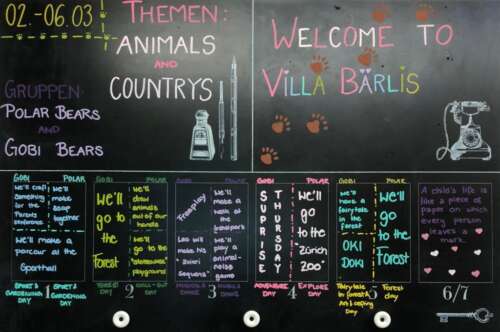 02.-06.03
THEMEN:
ANIMALS
AND
COUNTRYS
GRUPPEN:
POLAR BEARS
AND
GOBI BEARS
WELCOME TO
VILLA BÄRLIS
GOBI POLAR
We'll craft
Something
for the
Parents
We'll make
soap
together
We'll make a
parcour at the
Sporthall
SPORT &
GARDENING
DAY
1
SPORT &
GARDENING
DAY
GOBI POLAR
We'll
go to
the
Forest
We'll
draw
animals
out of our
hands
We'll
go to the
playground
2
DAY
GOBI POLAR
Freeplay
We'll
make a
walk at the
We'll
play a
animal-
noise
game
3
DAY
GOBI POLAR
SUPRISE
THURSDAY
We'll
go
to the
"Zürich
ZOO"
ADVENTURE
DAY
4
EXPLORE
DAY
GOBI POLAR
We'll
have a
fairytale
in the
forest
OKI
DOKI
We'll
go
to
the
Forest
Fairytale
in forest/
Art & Oeping
day
5
Forest
day
A child's life is
like a piece of
paper on which
every person
leaves a
mark.
6/7